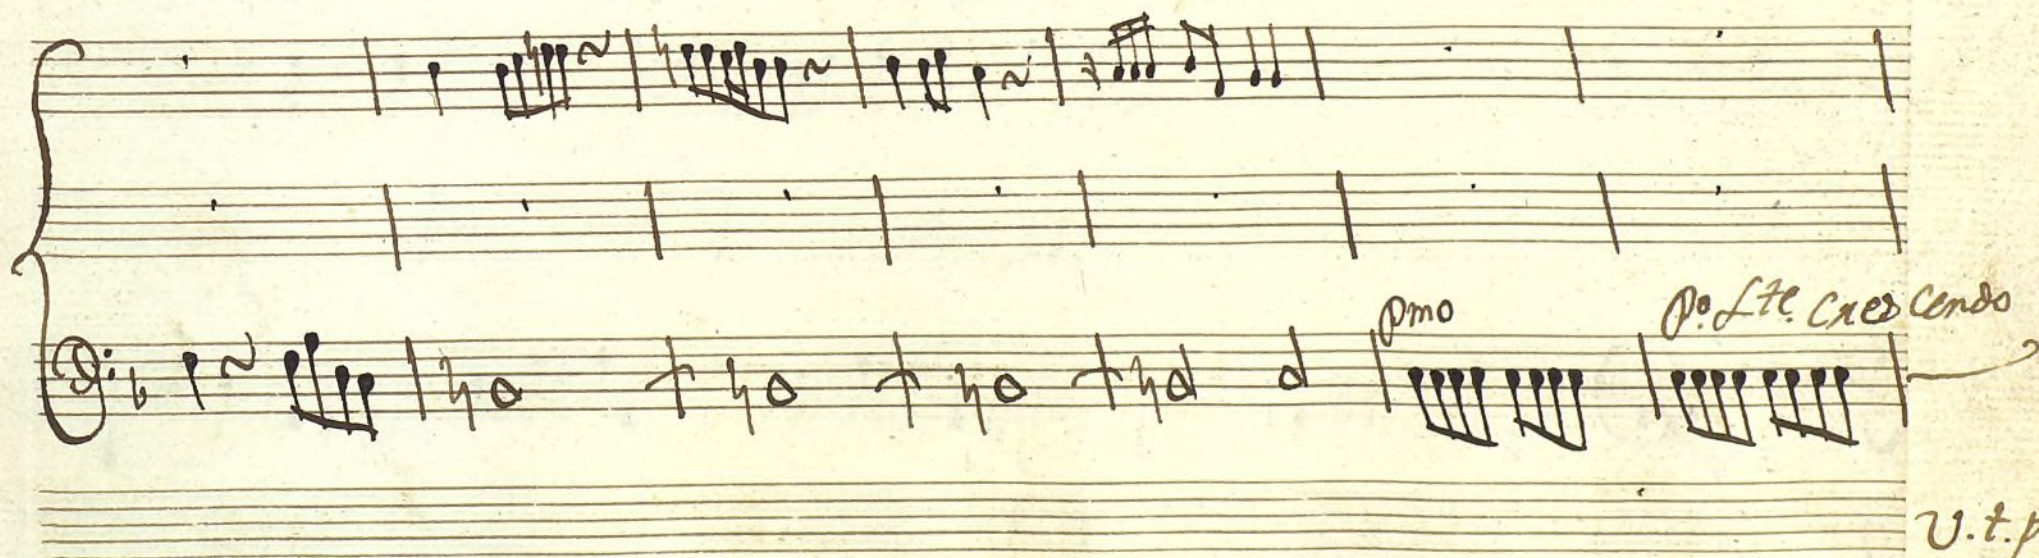 pmo
Po. Lte. Crescendo
V.t.p